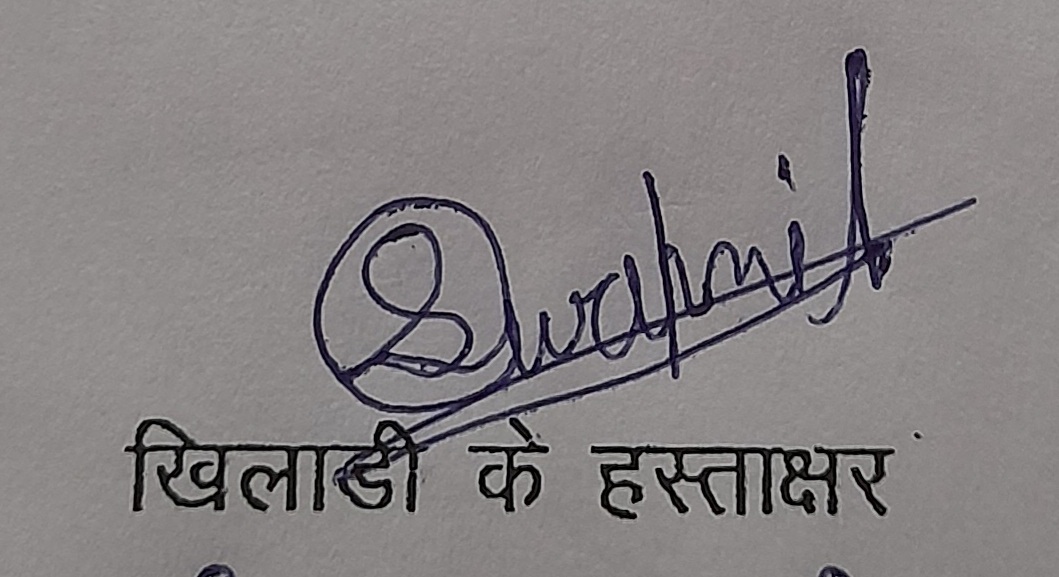 Swapnil
खिलाडी के हस्ताक्षर